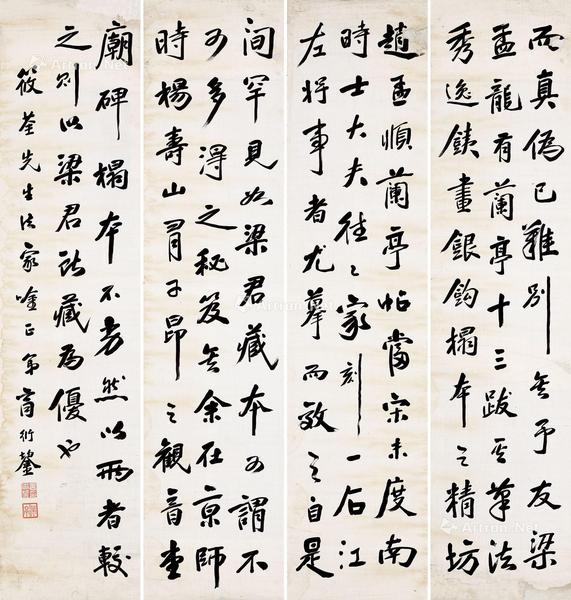 而真偽已難別矣予友梁
孟龍有蘭亭十三跋其筆法
秀逸銕畫銀鈎榻本之精坊
趙孟順蘭亭帖當宋未度南
時士大夫往〻家刻一石江
左好事者尤摹而效之自是
间罕見如梁君藏本可謂不
可多得之秘笈矣余在京師
時楊壽山有子昂之觀音堂
廟碑榻本不 然以兩者較
之則以梁君所藏為優也
筱荃先生法家唫正弟商衍鎏
Artron.Net